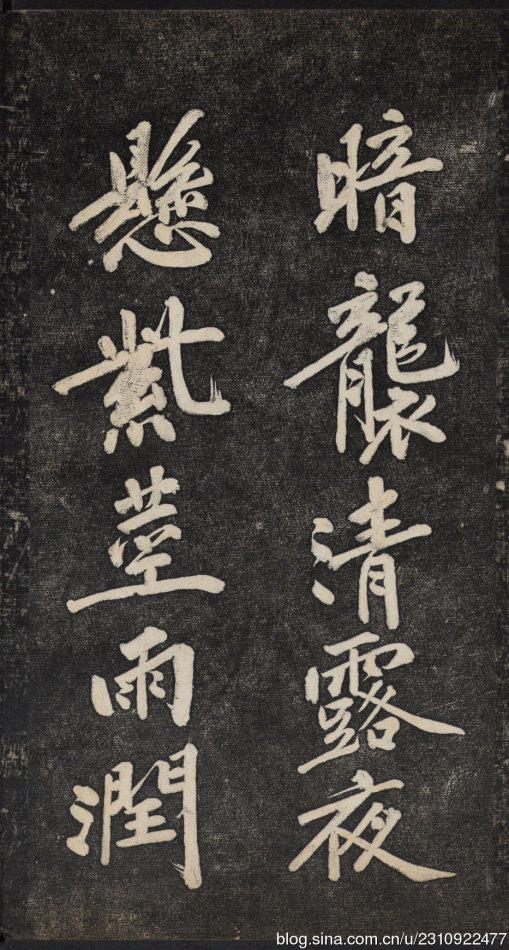 暗襲清露夜
懸紫莖雨潤
blog.sina.com.cn/u/2310922477